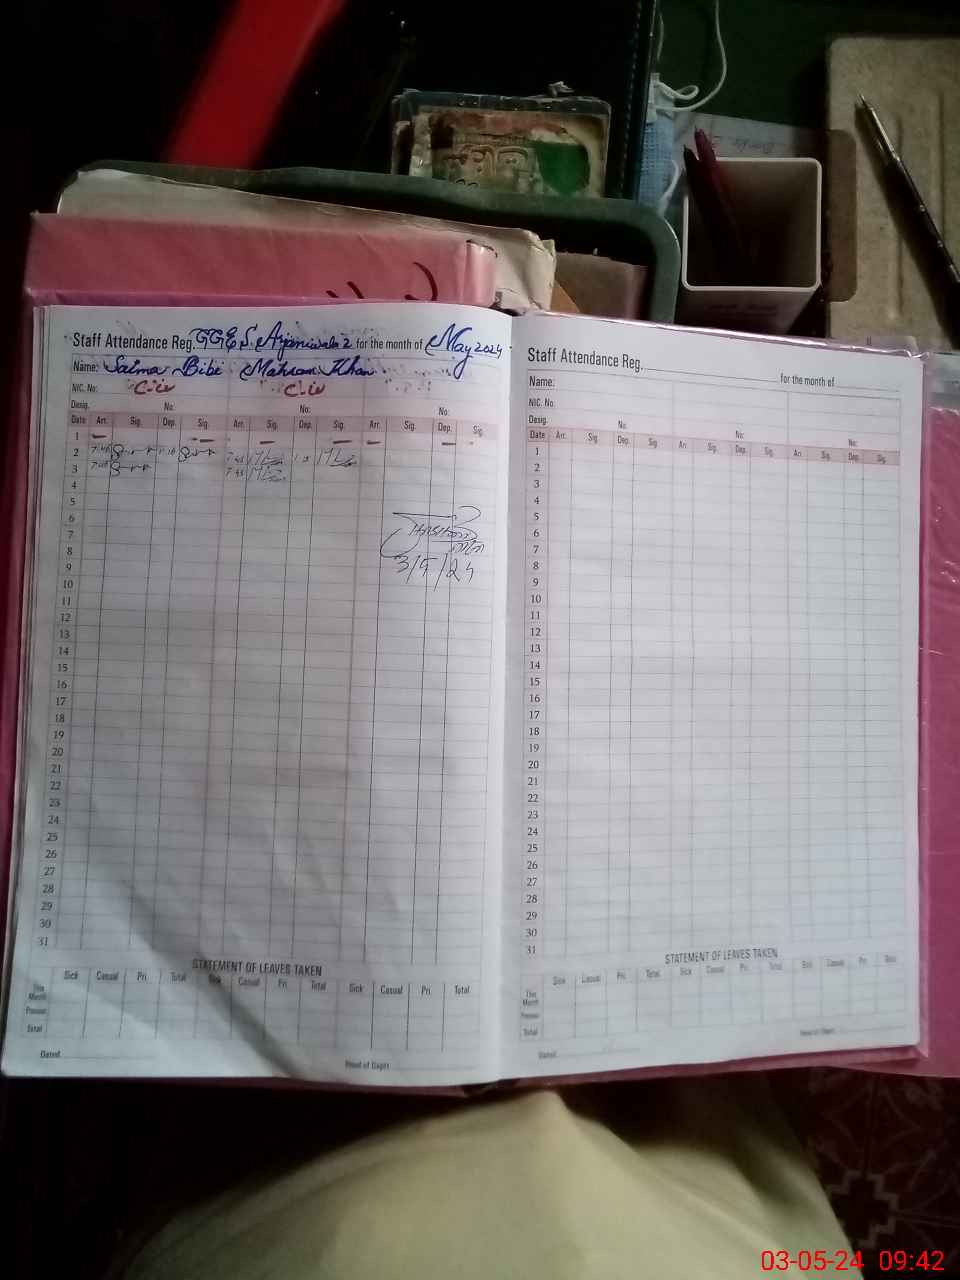 Staff Attendance Reg. GGES. Arjaniwala 2 for the month of May 2024
Name: Saima Bibi Mahram Khan
NIC. No:
Desig. No: No: No:
Date Arr. Sig. Dep. Sig. Arr. Sig. Dep. Sig. Arr. Sig. Dep. Sig.
1
2 7:45 7:45
3 7:45 7:45
4
5
6
7
8
9 3/5/24
10
11
12
13
14
15
16
17
18
19
20
21
22
23
24
25
26
27
28
29
30
31
STATEMENT OF LEAVES TAKEN
Sick Casual Pri. Total Sick Casual Pri. Total Sick Casual Pri. Total
This Month
Previous
Total
Dated Head of Deptt
Staff Attendance Reg. for the month of
Name:
NIC. No:
Desig. No: No: No:
Date Arr. Sig. Dep. Sig. Arr. Sig. Dep. Sig. Arr. Sig. Dep. Sig.
1
2
3
4
5
6
7
8
9
10
11
12
13
14
15
16
17
18
19
20
21
22
23
24
25
26
27
28
29
30
31
STATEMENT OF LEAVES TAKEN
Sick Casual Pri. Total Sick Casual Pri. Total Sick Casual Pri. Total
This Month
Previous
Total
Dated Head of Deptt
03-05-24 09:42